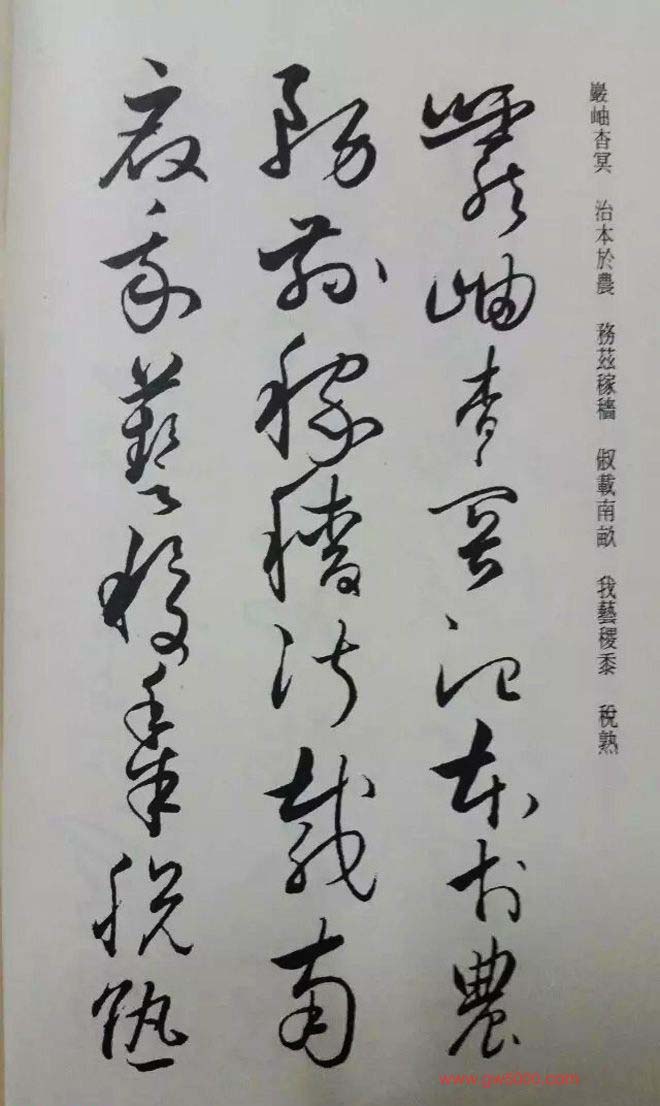 巖岫杳冥 治本於農 務茲稼穡 俶載南畝 我藝稷黍 稅熟
巖岫杳冥治本於農
務茲稼穡俶載南
畝我藝稷黍稅熟
www.gw8000.com